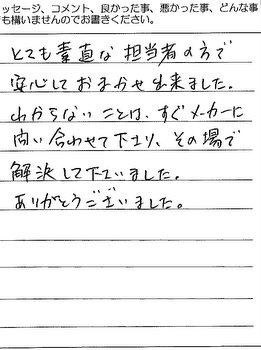 ッセージ、コメント、良かった事、悪かった事、どんな事
も構いませんのでお書きください。
とても素直な担当者の方で
安心しておまかせ出来ました。
わからないことは、すぐメーカーに
問い合わせて下さり、その場で
解決して下さいました。
ありがとうございました。